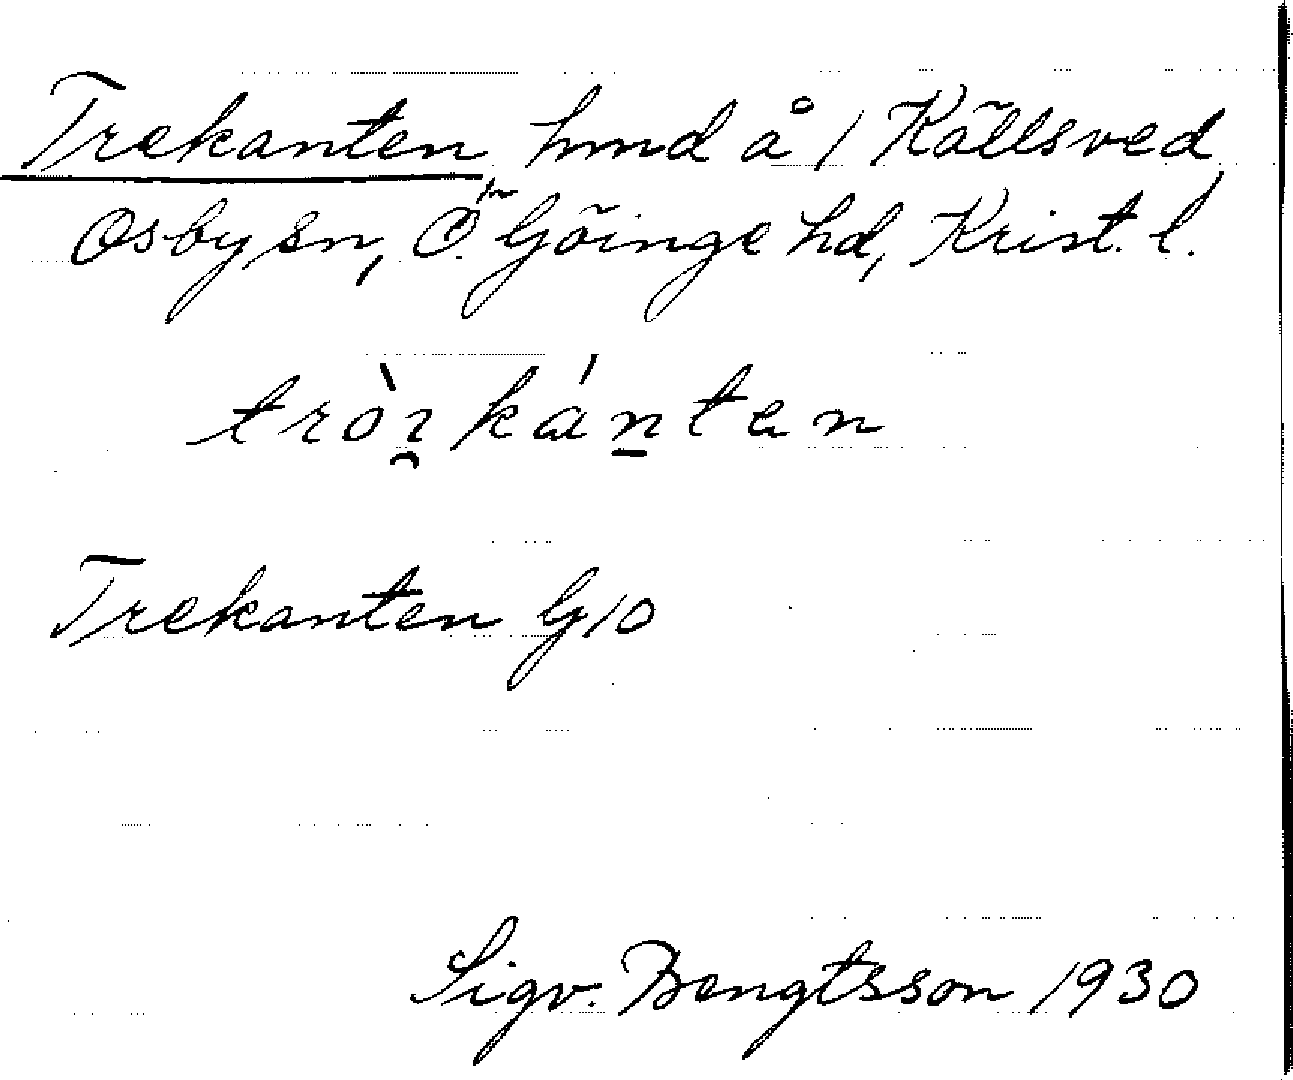 Trekanten hmd å 1 Källsved
Osby sn, Ö. Göinge hd, Krist. l.
Trekanten G10
Sigv. Bengtsson 1930